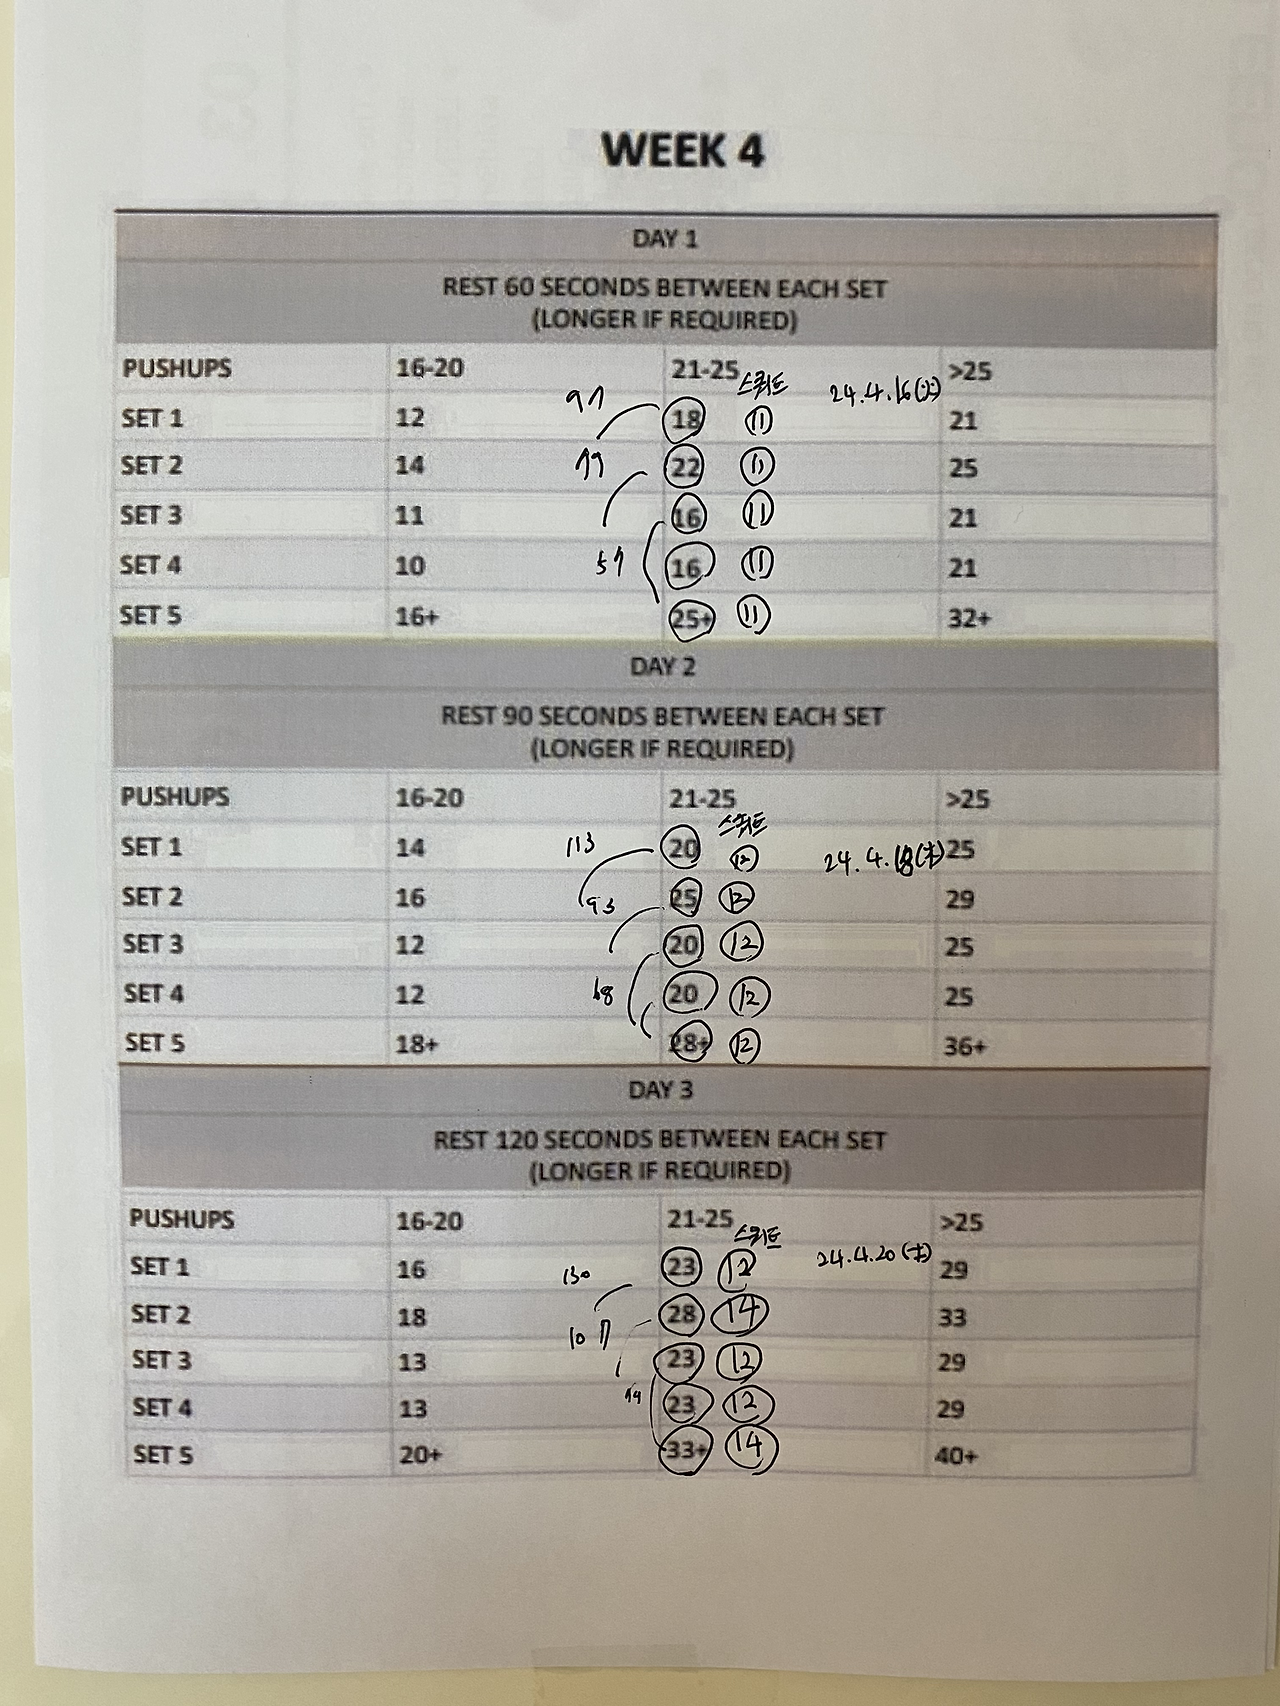 WEEK 4
DAY 1
REST 60 SECONDS BETWEEN EACH SET
(LONGER IF REQUIRED)
PUSHUPS 16-20 21-25 스쿼트 24.4.16(火) >25
SET 1 12 97 18 11 21
SET 2 14 79 22 11 25
SET 3 11 16 11 21
SET 4 10 57 16 11 21
SET 5 16+ 25+ 11 32+
DAY 2
REST 90 SECONDS BETWEEN EACH SET
(LONGER IF REQUIRED)
PUSHUPS 16-20 21-25 스쿼트 >25
SET 1 14 113 20 12 24.4.18(木) 25
SET 2 16 93 25 12 29
SET 3 12 20 12 25
SET 4 12 68 20 12 25
SET 5 18+ 28+ 12 36+
DAY 3
REST 120 SECONDS BETWEEN EACH SET
(LONGER IF REQUIRED)
PUSHUPS 16-20 21-25 스쿼트 >25
SET 1 16 130 23 12 24.4.20 29
SET 2 18 107 28 14 33
SET 3 13 23 12 29
SET 4 13 79 23 12 29
SET 5 20+ 33+ 14 40+